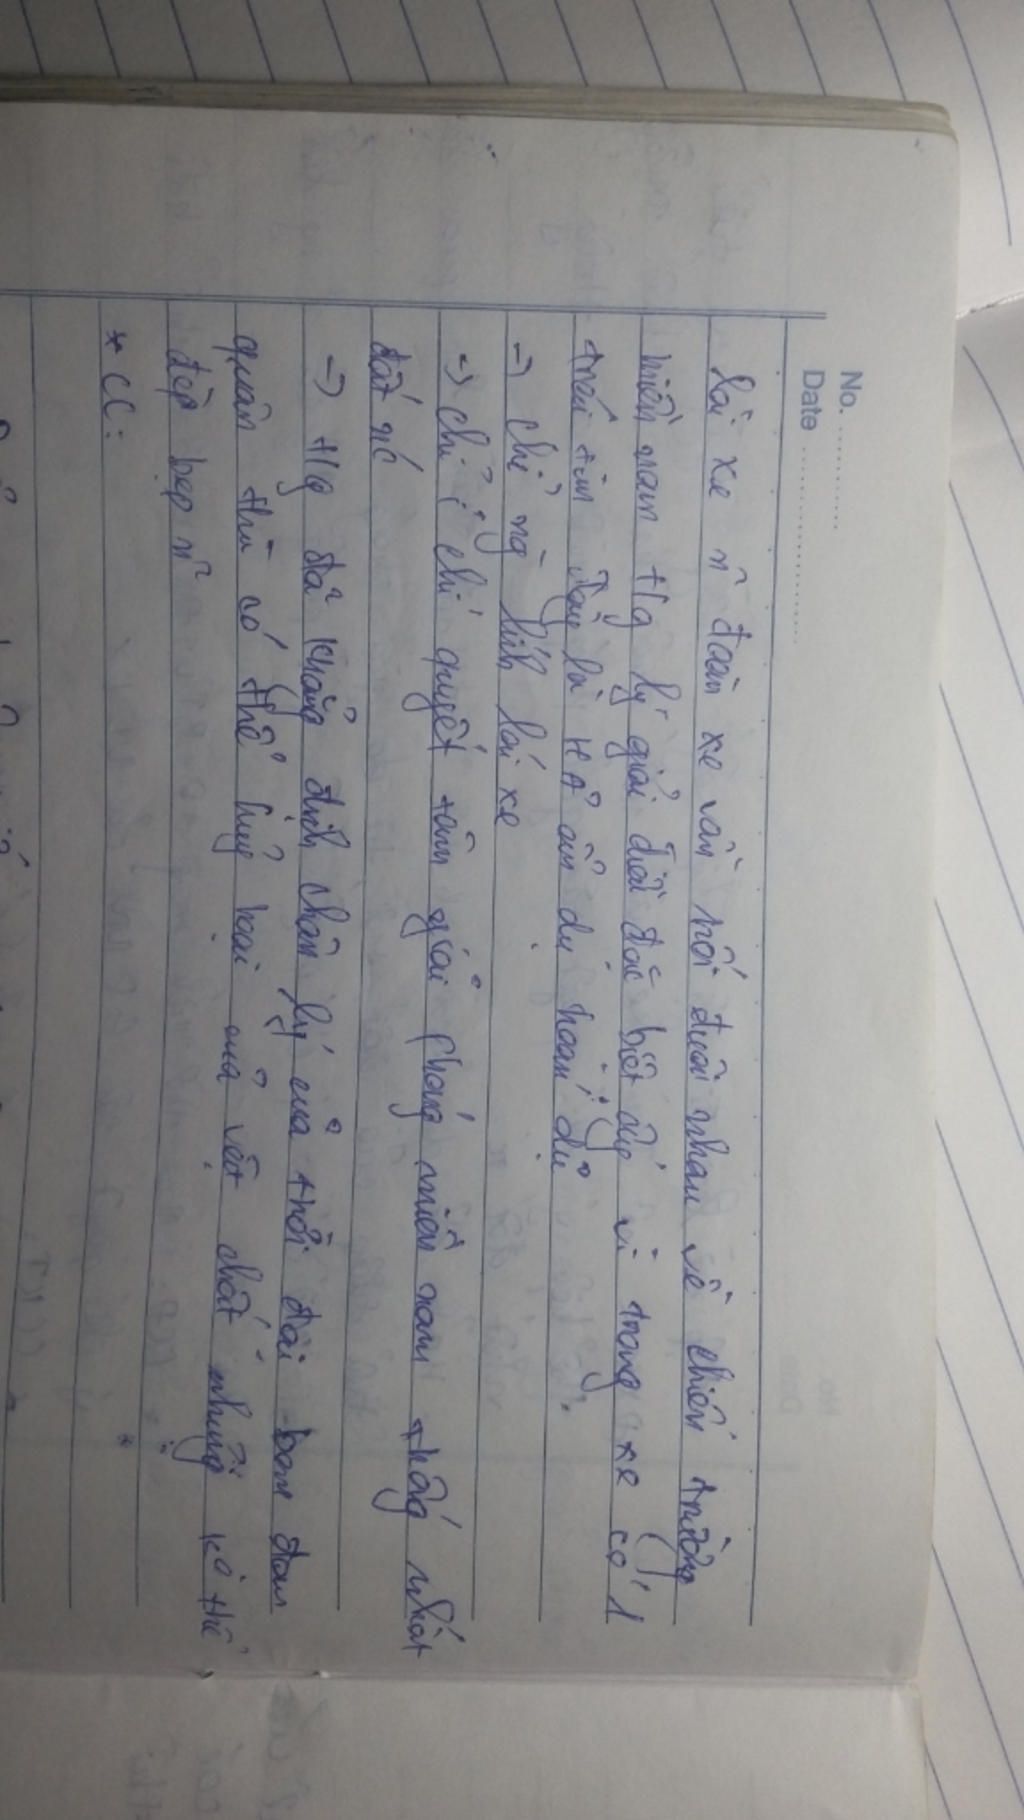 No. ...............
Date ......................
lái xe n~ đoàn xe vẫn nối đuôi nhau về chiến trường
miền nam t/g lý giải điều đặc biệt ấy vì trong xe có 1
trái tim đây là HẢ ẩn dụ hoán dụ
-> chỉ ng lính lái xe
-> chỉ ý chí quyết tâm giải phóng miền nam thống nhất
đất nc
-> t/g đã khẳng định chân lý của thời đại bom đạn
quân thù có thể huỷ hoại của vật chất nhưng k° thể
đè bẹp n~
* CC: